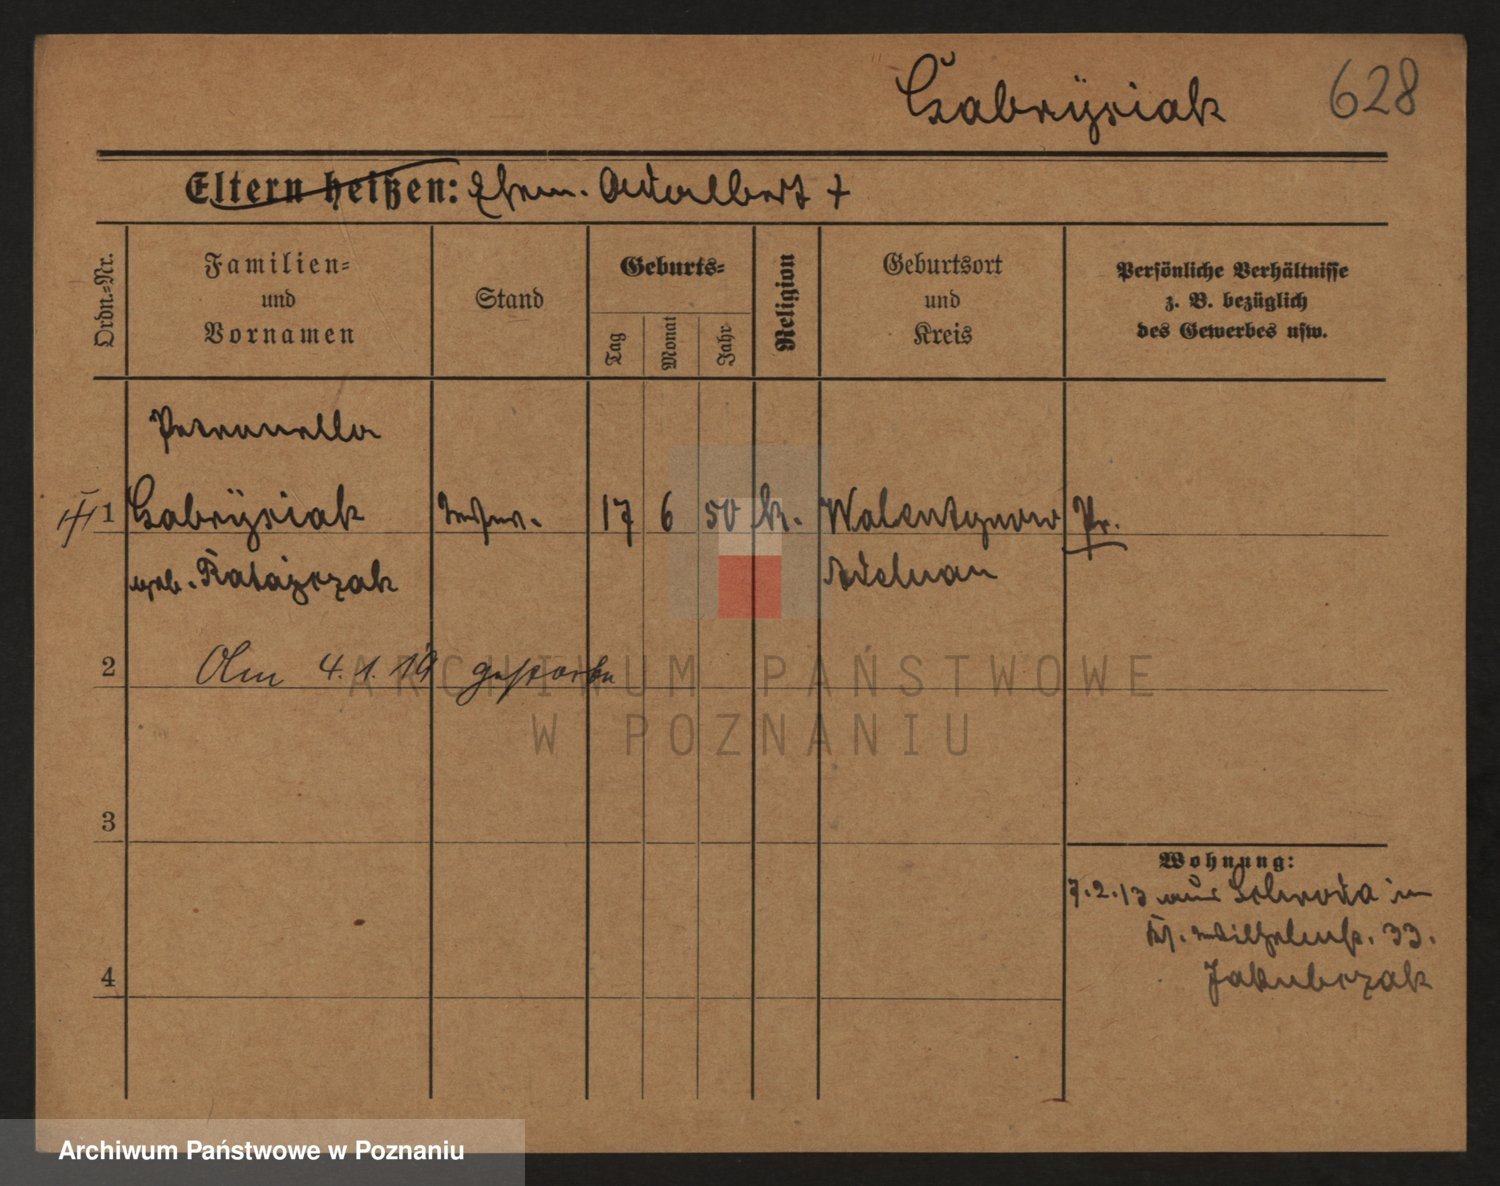 Gabrysiak 628
Eltern heißen: Ehem. Adalbert +
Ordn.-Nr.
Familien-
und
Vornamen
Stand
Geburts-
Tag
Monat
Jahr
Religion
Geburtsort
und
Kreis
Persönliche Verhältnisse
z. B. bezüglich
des Gewerbes usw.
Petronella
1 Gabrysiak 17 6 50 k. Walentynowo Pr.
geb. Ratajczak Adelnau
2 Am 4.1.19 gestorben
3
Wohnung:
7.2.13 aus Schroda in
Wilhelmstr. 33.
4 Jakubczak
ARCHIWUM PAŃSTWOWE
W POZNANIU
Archiwum Państwowe w Poznaniu